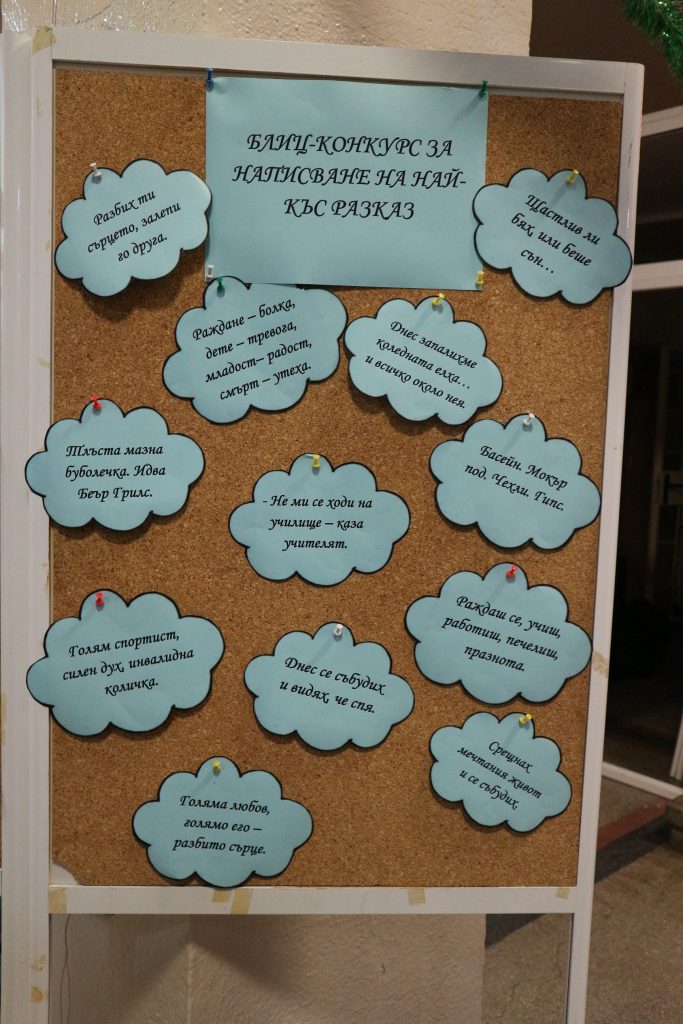 БЛИЦ-КОНКУРС ЗА
НАПИСВАНЕ НА НАЙ-
КЪС РАЗКАЗ
Разбих ти
сърцето, залепи
го друга.
Щастлив ли
бях, или беше
сън...
Раждане – болка,
дете – тревога,
младост– радост,
смърт – утеха.
Днес запалихме
коледната елха...
и всичко около нея.
Тлъста мазна
буболечка. Идва
Беър Грилс.
- Не ми се ходи на
училище – каза
учителят.
Басейн. Мокър
под. Чехли. Гипс.
Голям спортист,
силен дух, инвалидна
количка.
Днес се събудих
и видях, че спя.
Раждаш се, учиш,
работиш, печелиш,
празнота.
Срещнах
мечтания живот
и се събудих.
Голяма любов,
голямо его –
разбито сърце.